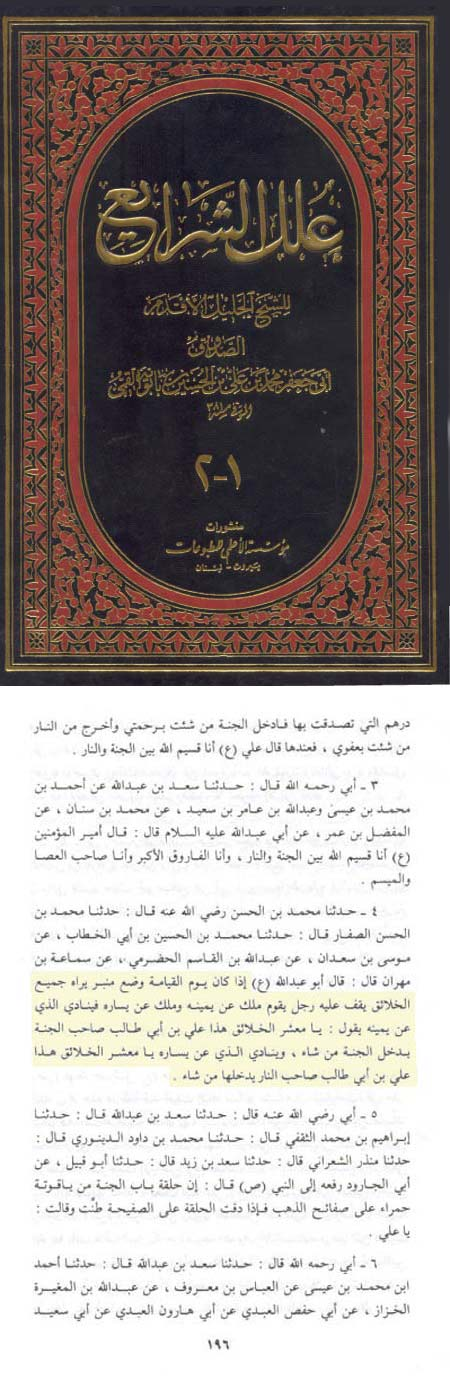 علل الشرايع
للشيخ الجليل الأقدم
الصدوق
أبي جعفر محمد بن علي بن الحسين بن بابويه القمي
١-٢
منشورات
مؤسسة الأعلمي للمطبوعات
بيروت - لبنان
درهم التي تصدقت بها فادخل الجنة من شئت برحمتي وأخرج من النار
من شئت بعفوي ، فعندها قال علي (ع) أنا قسيم الله بين الجنة والنار .
٣ - أبي رحمه الله قال : حدثنا سعد بن عبدالله عن أحمد بن
محمد بن عيسىٰ وعبدالله بن عامر بن سعيد ، عن محمد بن سنان ، عن
المفضل بن عمر ، عن أبي عبدالله عليه السلام قال : قال أمير المؤمنين
(ع) أنا قسيم الله بين الجنة والنار ، وأنا الفاروق الأكبر وأنا صاحب العصا
والميسم .
٤ - حدثنا محمد بن الحسن رضي الله عنه قال : حدثنا محمد بن
الحسن الصفار قال : حدثنا محمد بن الحسين بن أبي الخطاب ، عن
موسى بن سعدان ، عن عبدالله بن القاسم الحضرمي ، عن سماعة بن
مهران قال : قال أبو عبدالله (ع) إذا كان يوم القيامة وضع منبر يراه جميع
الخلائق يقف عليه رجل يقوم ملك عن يمينه وملك عن يساره فينادي الذي
عن يمينه يقول : يا معشر الخلائق هذا علي بن أبي طالب صاحب الجنة
يدخل الجنة من شاء ، وينادي الذي عن يساره يا معشر الخلائق هذا
علي بن أبي طالب صاحب النار يدخلها من شاء .
٥ - أبي رضي الله عنه قال : حدثنا سعد بن عبدالله قال : حدثنا
إبراهيم بن محمد الثقفي قال : حدثنا محمد بن داود الدينوري قال :
حدثنا منذر الشعراني قال : حدثنا سعد بن زيد قال : حدثنا أبو قبيل ، عن
أبي الجارود رفعه إلى النبي (ص) قال : إن حلقة باب الجنة من ياقوتة
حمراء على صفائح الذهب فإذا دقت الحلقة على الصفيحة طنّت وقالت :
يا علي .
٦ - أبي رحمه الله قال : حدثنا سعد بن عبدالله قال : حدثنا أحمد
ابن محمد بن عيسى عن العباس بن معروف ، عن عبدالله بن المغيرة
الخزاز ، عن أبي حفص العبدي عن أبي هارون العبدي عن أبي سعيد
١٩٦